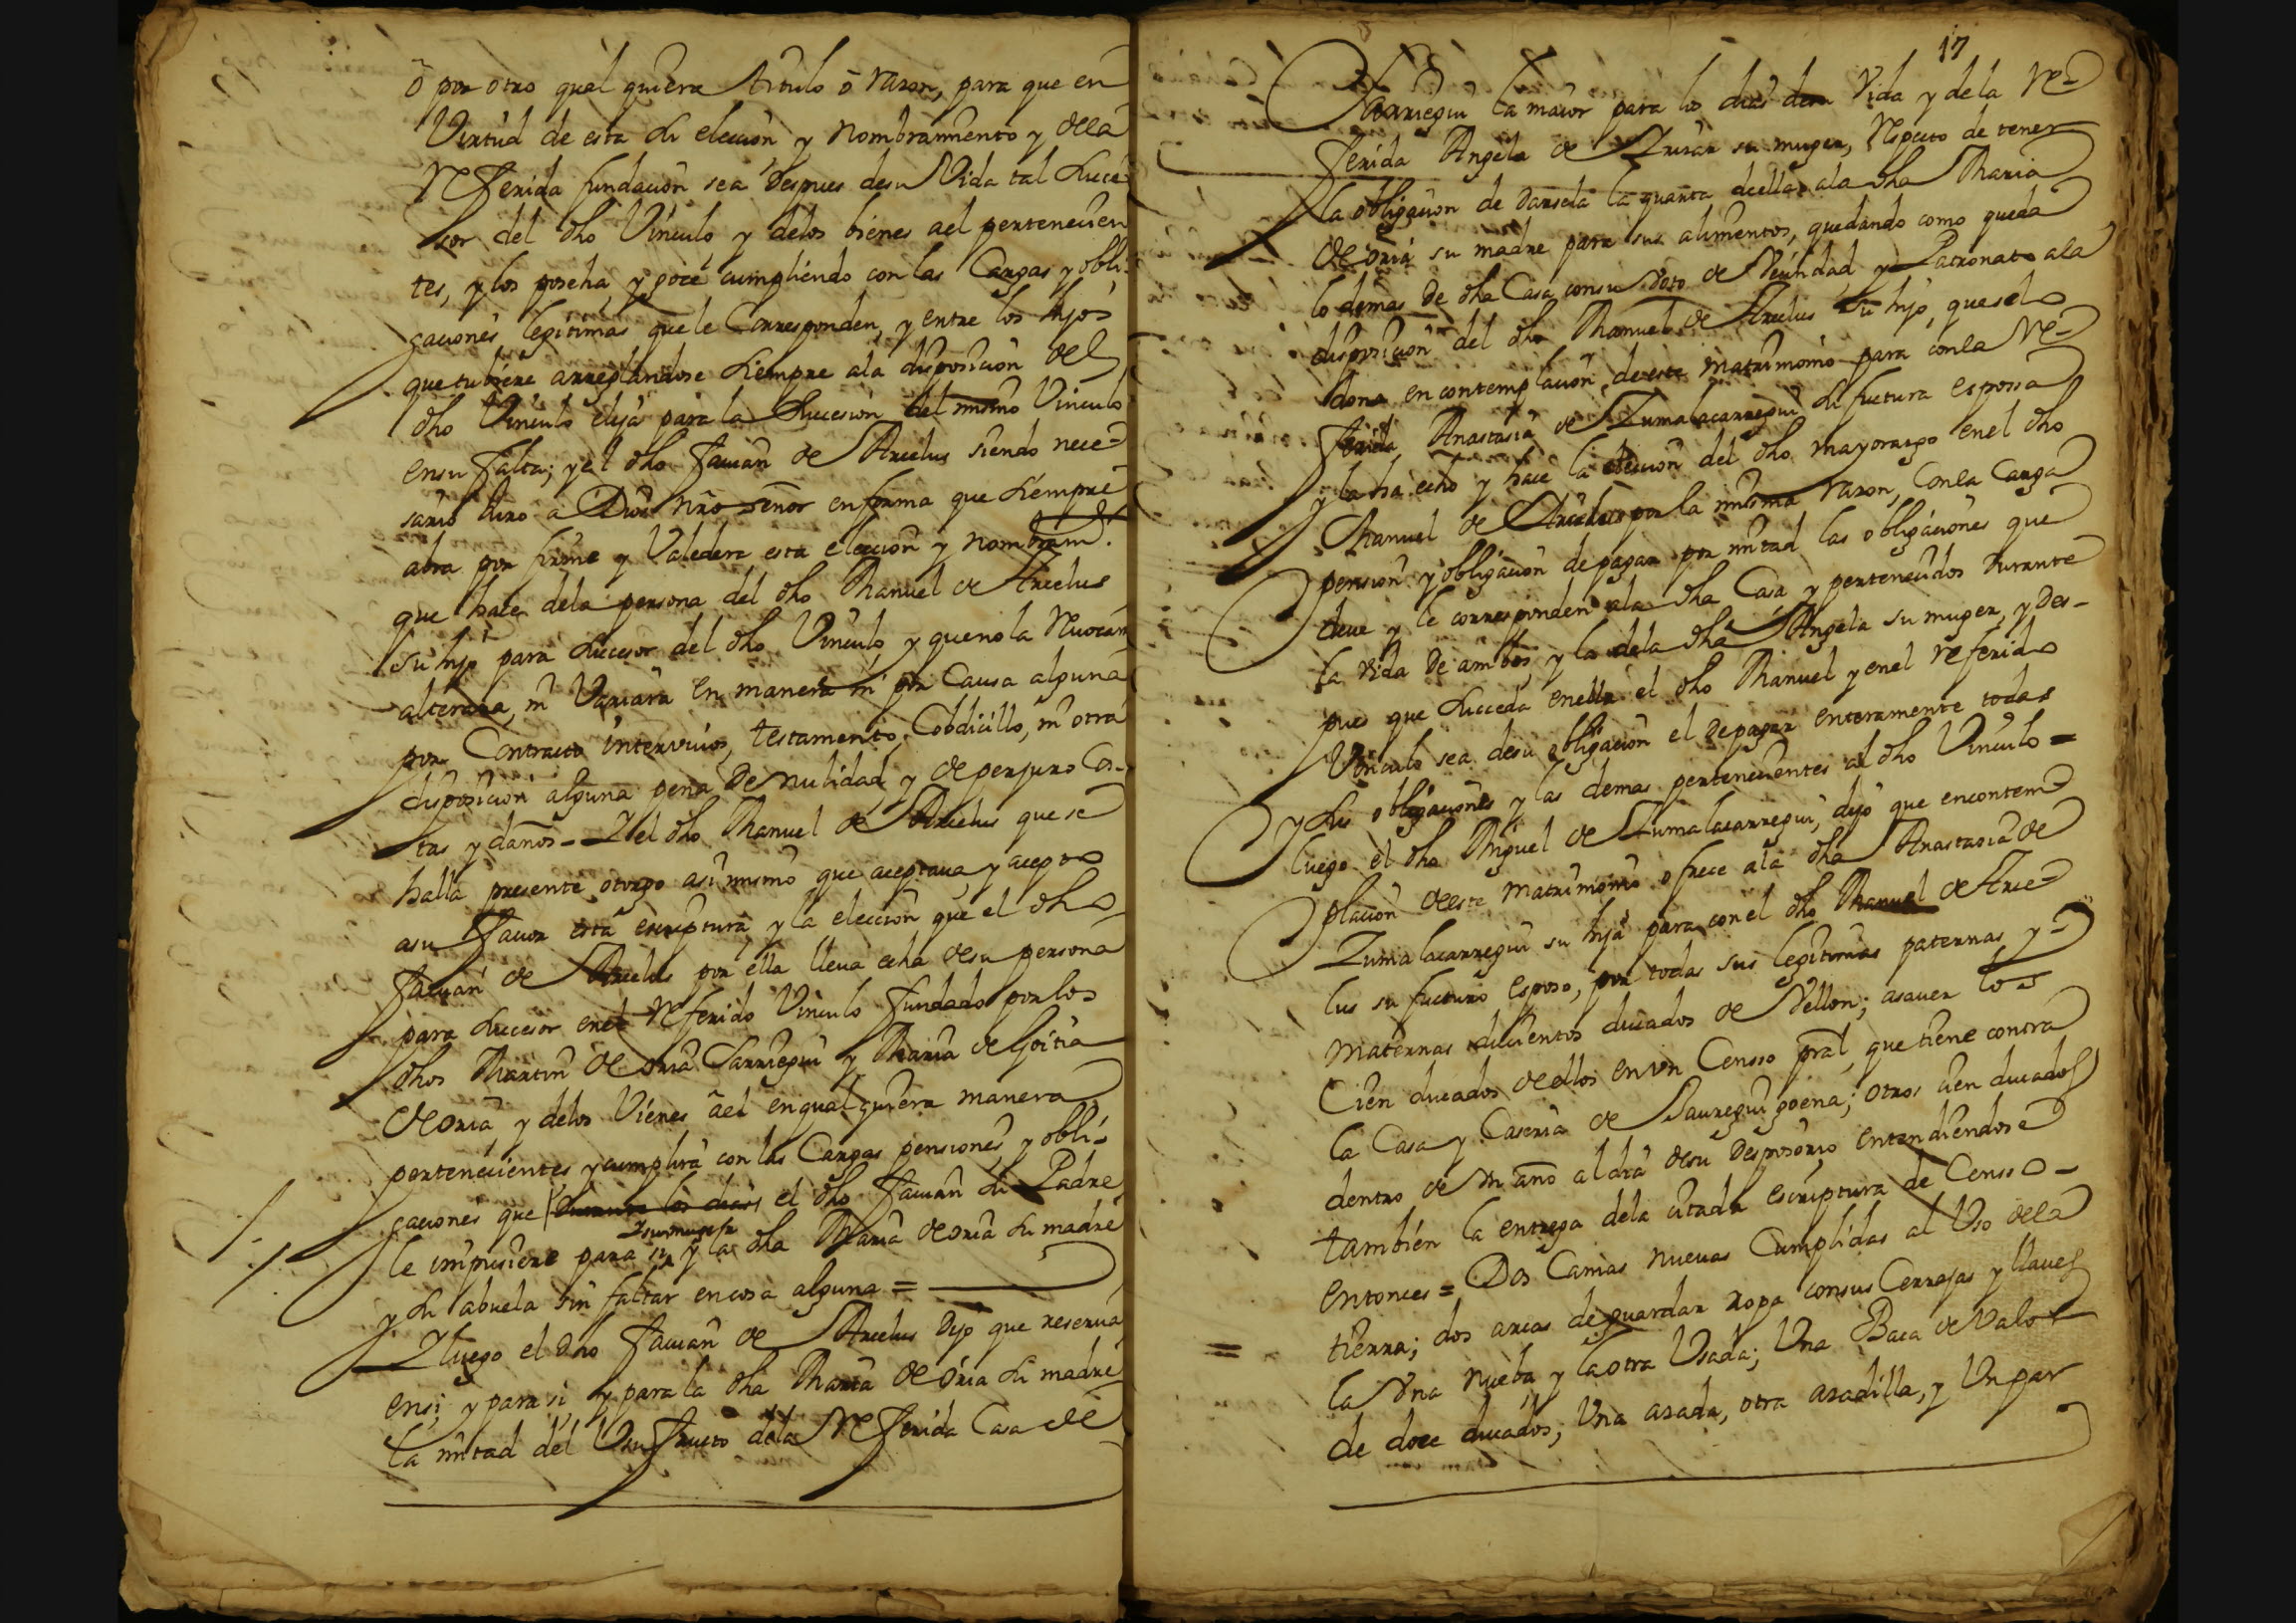 ô por otro qual quiera titulo ô razon, para que en
Virtud de esta su eleccion y nombramiento y dela
Referida fundacion sea despues desu Vida tal succe-
sor del dho Vinculo y delos bienes ael pertenecien
tes, y los poseha, y goce cumpliendo con las Cargas y obli-
gaciones legitimas que le Corresponden, y entre los hijos
que tubiere arreglandose siempre ala disposicion del
dho Vinculo elija para la Succesion del mismo Vinculo
ensu falta; y el dho Faĩan de Arcelus siendo nece-
sario Juro a Dios nro señor en forma que siempre
abra por firme y Valedera esta eleccion y nombram.
que hace dela persona del dho Manuel de Arcelus
su hijo para succesor del dho Vinculo y que no la Revocara
alterara, ni Variara en manera ni por Causa alguna
por Contracto intervivos, testamento, Cobdicillo, ni otra
disposicion alguna pena de nulidad y de perjuro Cos-
tas y daños = Y el dho Manuel de Arcelus que se
halla presente otorgo asimismo que aceptaua, y acepto
asu favor esta escriptura y la eleccion que el dho
de Arcelus por ella lleua echa desu persona
para succesor enel Referido Vinculo fundado por los
dhos Martin de oria Sarriegui y Maria de Goitia
de oria y delos Vienes ael en qual quiera manera
pertenecientes y cumplira con las Cargas pensiones, y obli-
gaciones que durante los dias el dho su Padre
y su muger
le impusiere para si y la dha Maria de oria su madre
y su abuela sin faltar en cosa alguna =
Y luego el dho de Arcelus dijo que reserua
ensi, y para si y para la dha Maria de oria su madre
la mitad del Usufructo dela Referida Casa de
17
Sarriegui la maior para los dias desu Vida y dela Re-
ferida Angela de su muger, Respecto de tener
la obligacion de darsela la quarta de ella ala dha Maria
de oria su madre para sus alimentos, quedando como queda
lo demas de dha Casa con su Voto de Vecindad, y Patronato ala
disposicion del dho Manuel de Arcelus su hijo, que selo
dona en contemplacion de este matrimonio para con la Re-
ferida Anastasia de Zumalacarregui su fuctura esposa
y la ha echo y hace la eleccion del dho mayorazgo enel dho
Manuel de Arcelus por la misma razon, Con la Carga
pension y obligacion de pagar por mitad las obligaciones que
deue y le corresponden ala dha Casa y pertenecidos durante
la vida de ambos, y la dela dha Angela su muger, y des-
pues que succeda enella el dho Manuel y enel referido
Vinculo sea desu obligacion el de pagar enteramente todas
sus obligaciones y las demas pertenecientes al dho Vinculo =
y luego el dho Miguel de Zumalacarregui, dijo que encontem
placion de este matrimonio ofrece ala dha Anastasia de
Zumalacarregui su hija para con el dho Manuel de Arce-
lus su fucturo esposo, por todas sus legitimas paternas y
maternas ducientos ducados de Vellon; asauer los
Cien ducados de ellos en vn Censso pral, que tiene contra
la Casa y Caseria de Sauregui goena; otros cien ducados
dentro de vn año al dia desu Desposorio, entendiendose
tambien la entrega dela citada escriptura de Censso -
entonces = Dos Camas nuevas Cumplidas al Uso dela
tierra; dos arcas de guardar ropa consus Cerrajas y llaues
la Vna nueba y la otra Vsada; Vna Baca de Valor
de doce ducados; Vna azada, otra azadilla, y Vn par